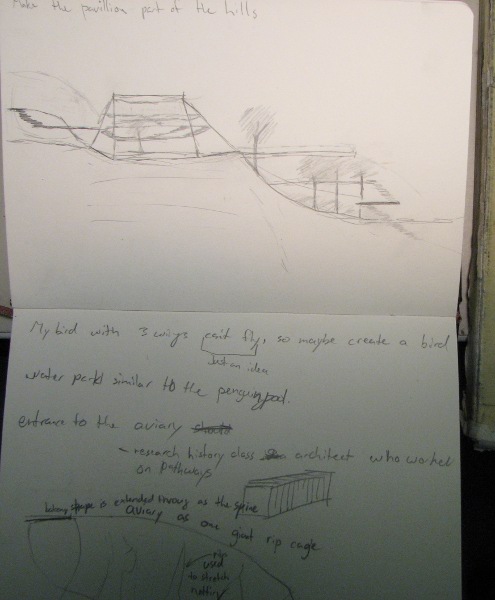 Make the pavillion part of the hills
My bird with 3 wings can't fly, so maybe create a bird
Just an idea
water park similar to the penguin pool.
entrance to the aviary
- research history class architect who worked
on Pathways
shape is extended through as the spine
aviary as one giant rip cage
rip
used
to stretch
netting